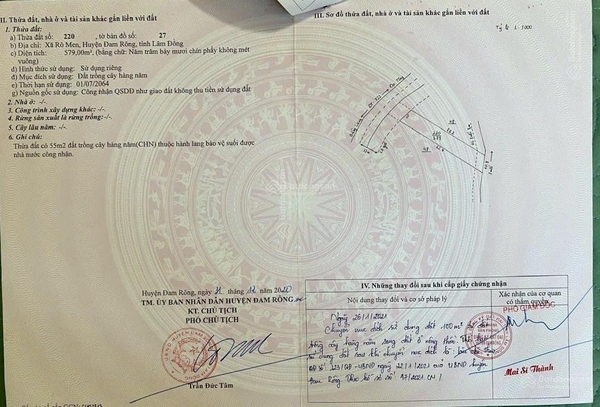 II. Thửa đất, nhà ở và tài sản khác gắn liền với đất
1. Thửa đất:
a) Thửa đất số: 220 , tờ bản đồ số: 27
b) Địa chỉ: Xã Rô Men, Huyện Đam Rông, tỉnh Lâm Đồng
c) Diện tích: 579,00m², (bằng chữ: Năm trăm bảy mươi chín phẩy không mét
vuông)
d) Hình thức sử dụng: Sử dụng riêng
đ) Mục đích sử dụng: Đất trồng cây hàng năm
e) Thời hạn sử dụng: 01/07/2064
g) Nguồn gốc sử dụng: Công nhận QSDĐ như giao đất không thu tiền sử dụng đất
2. Nhà ở: -/-
3. Công trình xây dựng khác: -/-
4. Rừng sản xuất là rừng trồng: -/-
5. Cây lâu năm: -/-
6. Ghi chú:
Thửa đất có 55m2 đất trồng cây hàng năm(CHN) thuộc hành lang bảo vệ suối được
nhà nước công nhận.
III. Sơ đồ thửa đất, nhà ở và tài sản khác gắn liền với đất
Tỷ lệ 1:1000
Huyện Đam Rông, ngày 31 tháng 12 năm 2020
TM. ỦY BAN NHÂN DÂN HUYỆN ĐAM RÔNG
KT. CHỦ TỊCH
PHÓ CHỦ TỊCH
Trần Đức Tâm
IV. Những thay đổi sau khi cấp giấy chứng nhận
Nội dung thay đổi và cơ sở pháp lý
Xác nhận của cơ quan
có thẩm quyền
Ngày 26/1/2021
Chuyển mục đích sử dụng đất 100m² từ đất
trồng cây hàng năm sang đất ở nông thôn
sử dụng đất sau khi chuyển mục đích là: lâu dài
QĐ số: 225/QĐ-UBND ngày 22/1/2021 của UBND huyện
Đam Rông. Theo hồ sơ số
PHÓ GIÁM ĐỐC
Mai Sĩ Thành